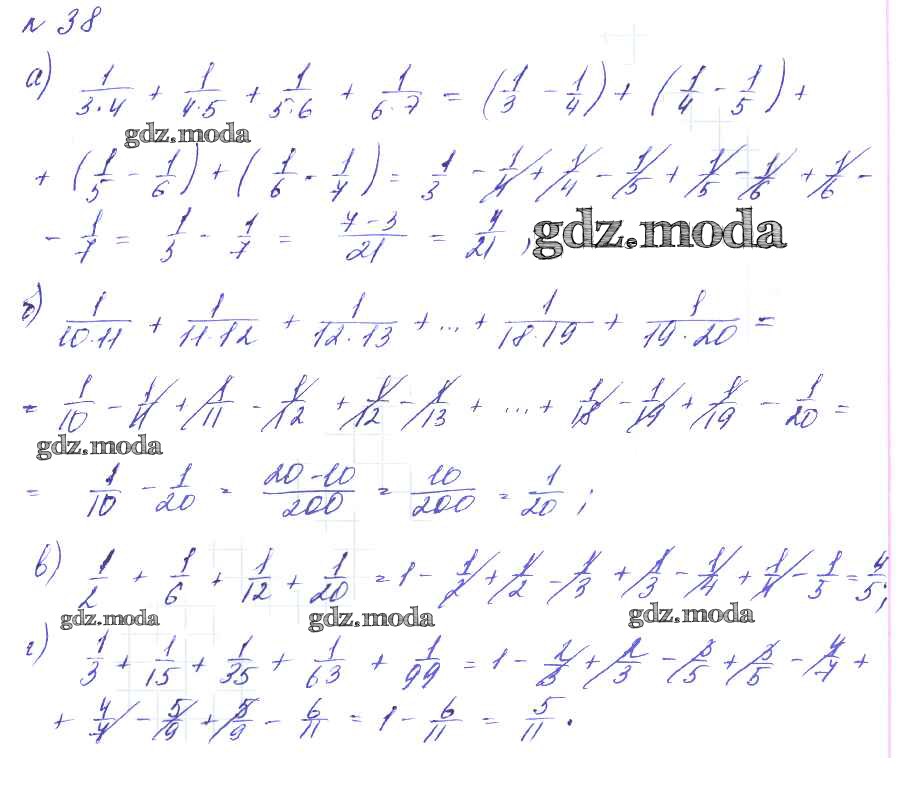 № 38
а) 1/(3·4) + 1/(4·5) + 1/(5·6) + 1/(6·7) = (1/3 − 1/4) + (1/4 − 1/5) +
gdz.moda
+ (1/5 − 1/6) + (1/6 - 1/7) = 1/3 − 1/4 + 1/4 − 1/5 + 1/5 − 1/6 + 1/6 −
− 1/7 = 1/3 − 1/7 = (7−3)/21 = 4/21 ; gdz.moda
б) 1/(10·11) + 1/(11·12) + 1/(12·13) + ... + 1/(18·19) + 1/(19·20) =
= 1/10 − 1/11 + 1/11 − 1/12 + 1/12 − 1/13 + ... + 1/18 − 1/19 + 1/19 − 1/20 =
gdz.moda
= 1/10 − 1/20 = (20−10)/200 = 10/200 = 1/20 ;
в) 1/2 + 1/6 + 1/12 + 1/20 = 1 − 1/2 + 1/2 − 1/3 + 1/3 − 1/4 + 1/4 − 1/5 = 4/5 ;
gdz.moda gdz.moda gdz.moda
г) 1/3 + 1/15 + 1/35 + 1/63 + 1/99 = 1 − 2/3 + 2/3 − 3/5 + 3/5 − 4/7 +
+ 4/7 − 5/9 + 5/9 − 6/11 = 1 − 6/11 = 5/11 .